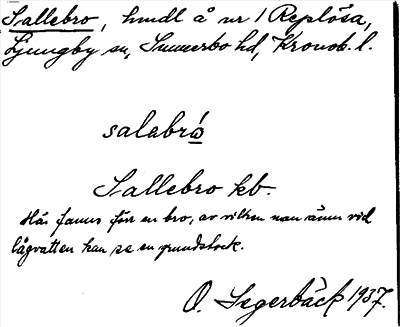 Sallebro, hmdl å nr 1 Replösa,
Ljungby sn, Sunnerbo hd, Kronob. l.
salabrὼ
Sallebro kb.
Här fanns förr en bro, av vilken man ännu vid
lågvatten kan se en grundstock.
O. Segerbäck 1937.